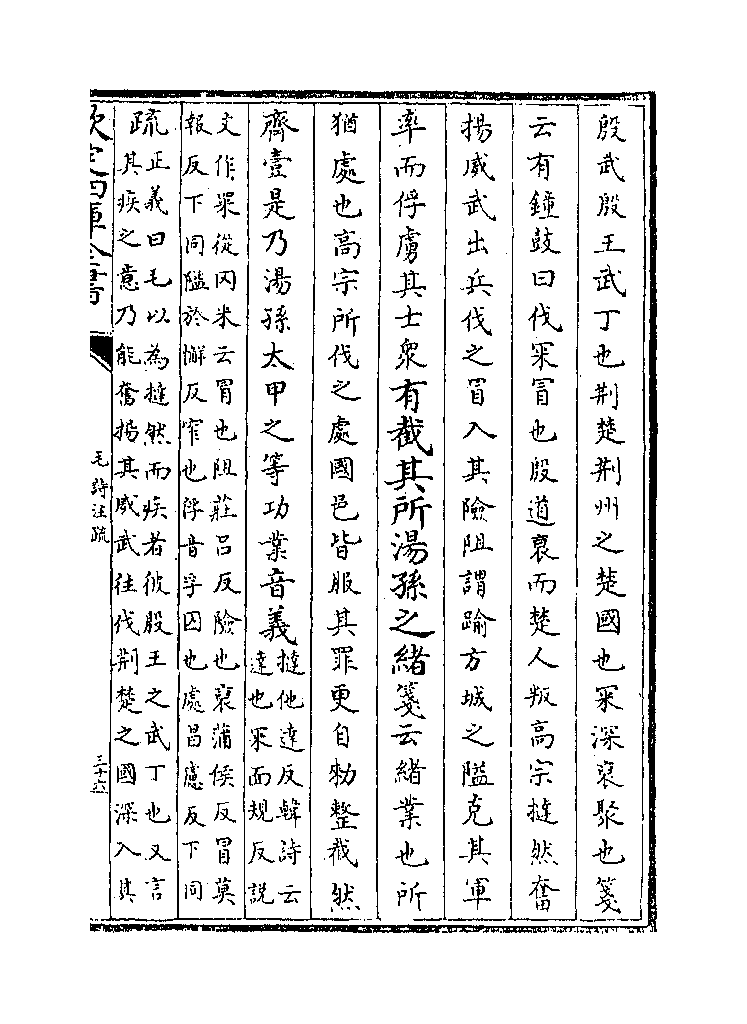 殷武殷王武丁也荆楚荆州之楚國也罙深裒聚也箋
云有鐘鼓曰伐罙冒也殷道衰而楚人叛高宗撻然奮
揚威武出兵伐之冒入其險阻謂踰方城之隘克其軍
率而俘虜其士衆有截其所湯孫之緒箋云緒業也所
猶處也高宗所伐之處國邑皆服其罪更自勑整截然
齊壹是乃湯孫太甲之等功業音義撻他達反韓詩云
達也罙面規反説
文作罙從冈米云冒也阻莊吕反險也裒蒲侯反冒莫
報反下同隘於懈反窄也俘音孚囚也處昌慮反下同
疏正義曰毛以為撻然而疾者彼殷王之武丁也又言
其疾之意乃能奮揚其威武往伐荆楚之國深入其
欽定四庫全書
毛詩注疏